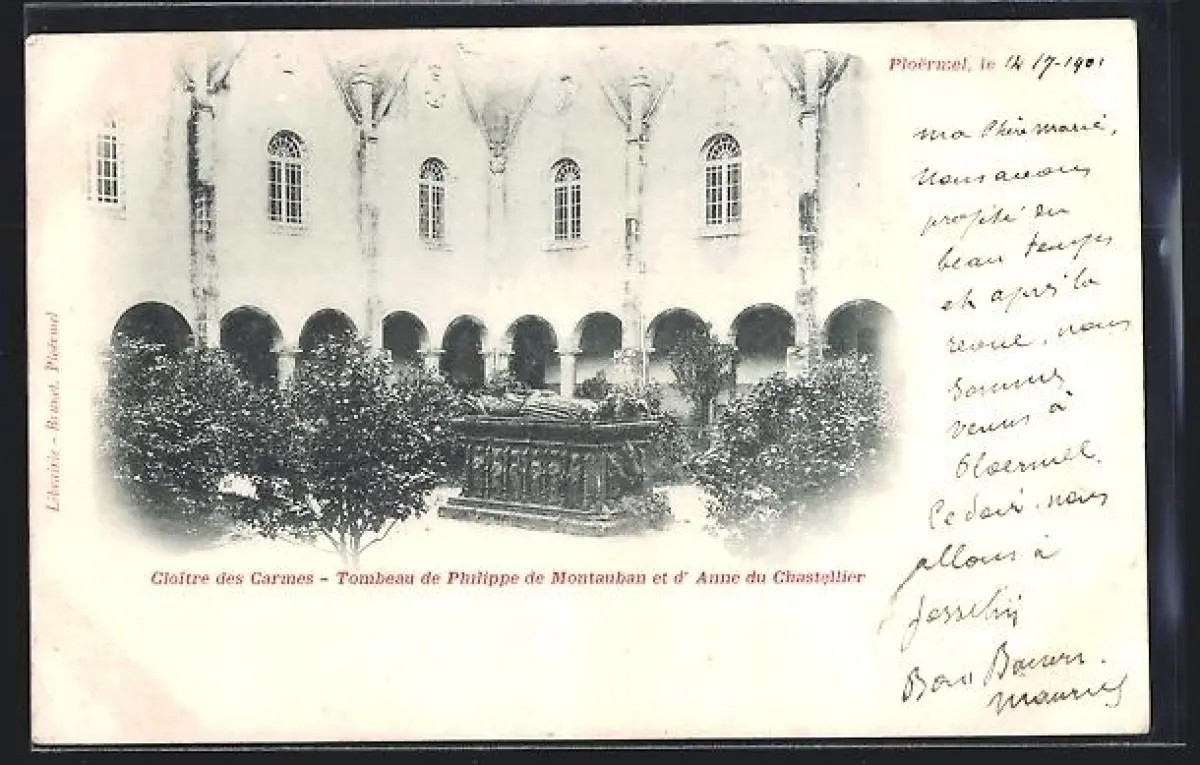 Ploërmel, le 14/7-1901
ma chère marie,
Nous avons
profité du
beau temps
et après la
revue, nous
sommes
venus à
Ploermel.
Ce soir, nous
allons à
Josselin
Bons Baisers.
Maurice
Librairie - Brunet, Ploërmel
Cloître des Carmes - Tombeau de Philippe de Montauban et d' Anne du Chastellier